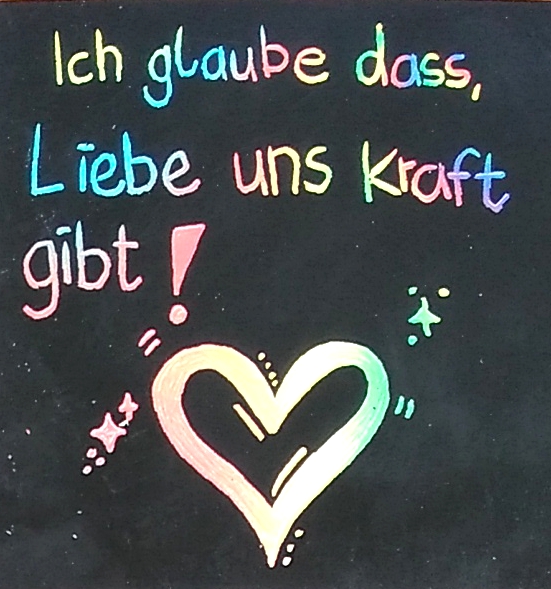 Ich glaube dass,
Liebe uns Kraft
gibt!